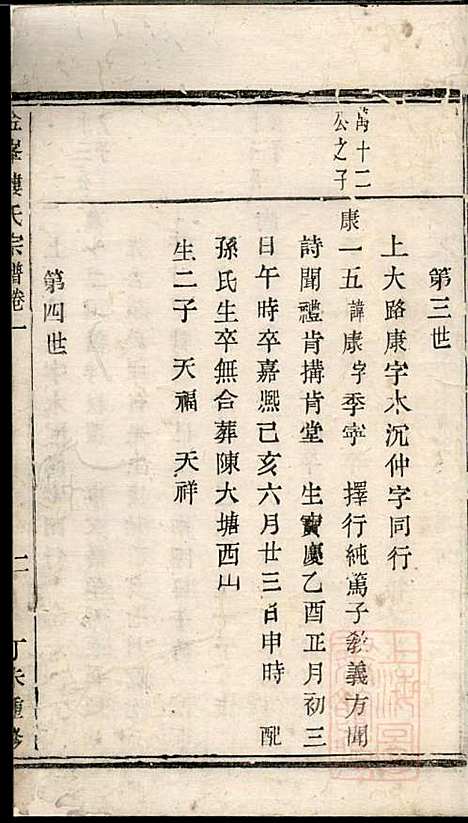 第三世
上大路康字木沉仲字同行
萬十二
公之子
康一五諱康字季寧 擇行純篤子教義方聞
詩聞禮肯搆肯堂 生寶慶乙酉正月初三
日午時卒嘉熙己亥六月廿三日申時 配
孫氏生卒無合葬陳大塘西山
生二子 天福 天祥
第四世
婁氏宗譜卷一
二
丁未重修